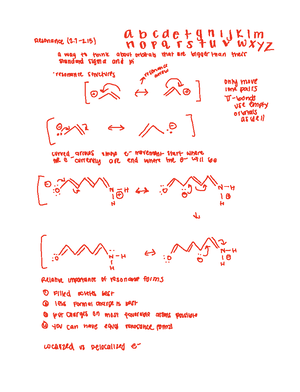 Resonance (2.7-2.13)
a b c d e f g h i j k l m
n o p q r s t u v w x y z
a way to think about orbitals that are bigger than their
standard sigma and pi
resonance structures
resonance arrow
only move
lone pairs
π-bonds
use empty
orbitals
as well
curved arrows show e⁻ movement start where
the e⁻ currently are end where the e⁻ will go
N-H
H
N-H
H
N-H
H
N-H
H
Relative importance of resonance forms
① filled octets best
② less formal charge is best
③ put charges on most favorable atoms possible
④ you can have equal resonance forms
localized vs delocalized e⁻